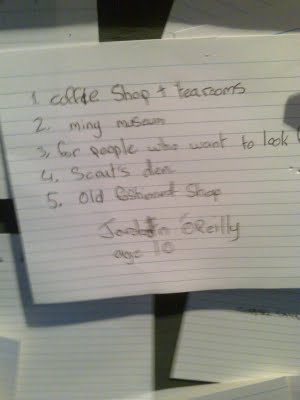 1 coffee Shop + tearooms
2. ming museum
3, for people who want to look
4. Scout's den
5. Old Shop
O'Reilly
age 10